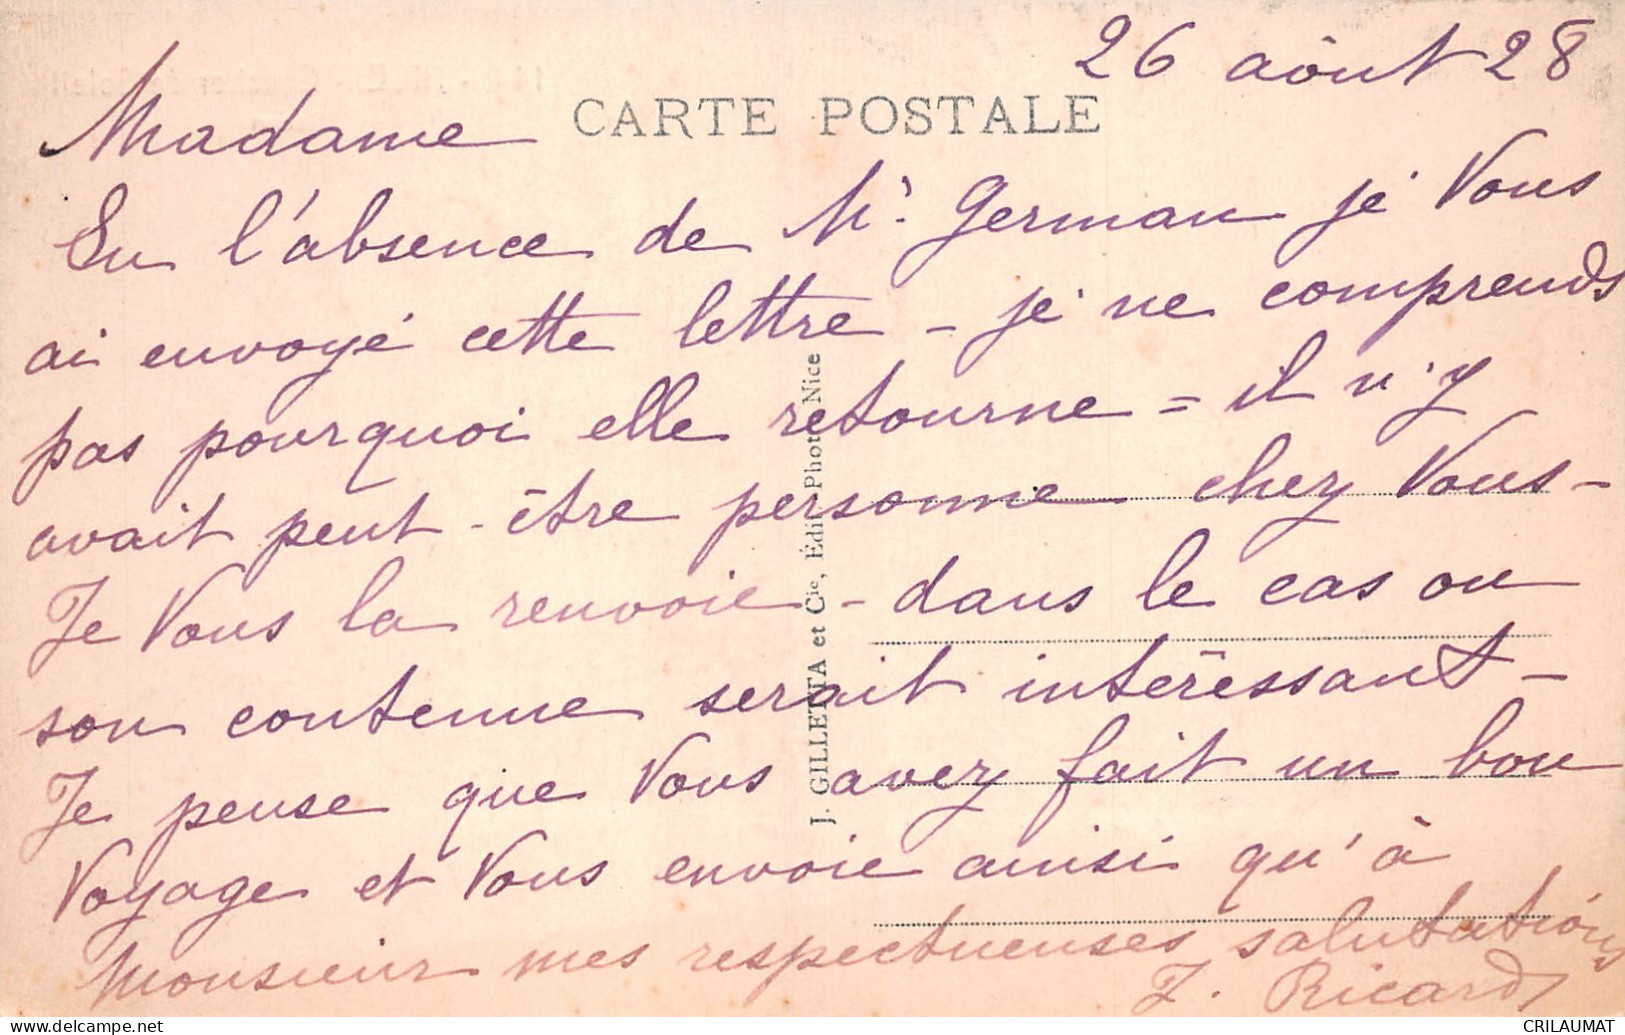 26 aôut 28
CARTE POSTALE
Madame
En l'absence de Mr. German je Vous
ai envoyé cette lettre - je ne comprends
pas pourquoi elle retourne = il n'y
avait peut-être personne chez Vous -
Je Vous la renvoie - dans le cas ou
son contenue serait intéressant -
Je pense que Vous avez fait un bon
Voyage et Vous envoie ainsi qu'à
Monsieur mes respectueuses salutations
J. Ricard
J. GILLETTA et Cie, Édit. Phot. Nice
CRILAUMAT